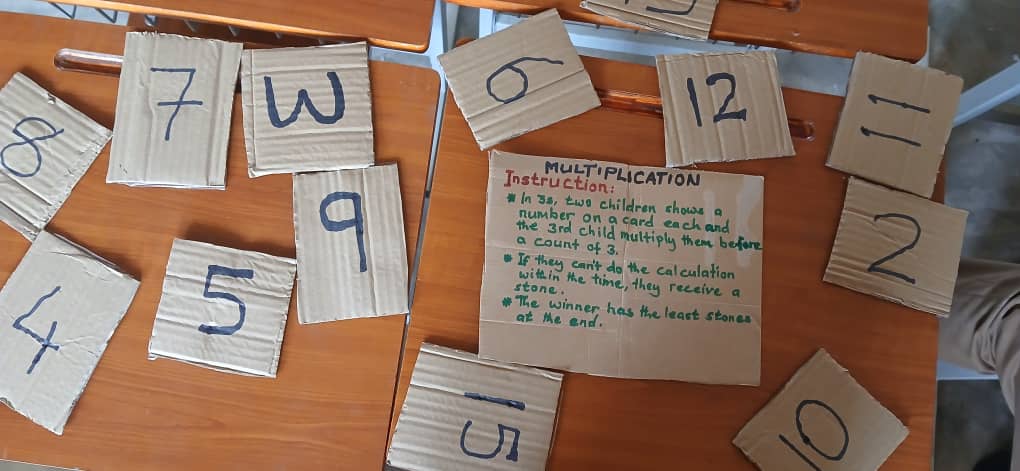 8
7
3
6
12
11
MULTIPLICATION
Instruction:
* In 3s, two children shows a
number on a card each and
the 3rd child multiply them before
a count of 3.
* If they can't do the calculation
within the time, they receive a
stone.
* The winner has the least stones
at the end.
9
2
5
4
15
10